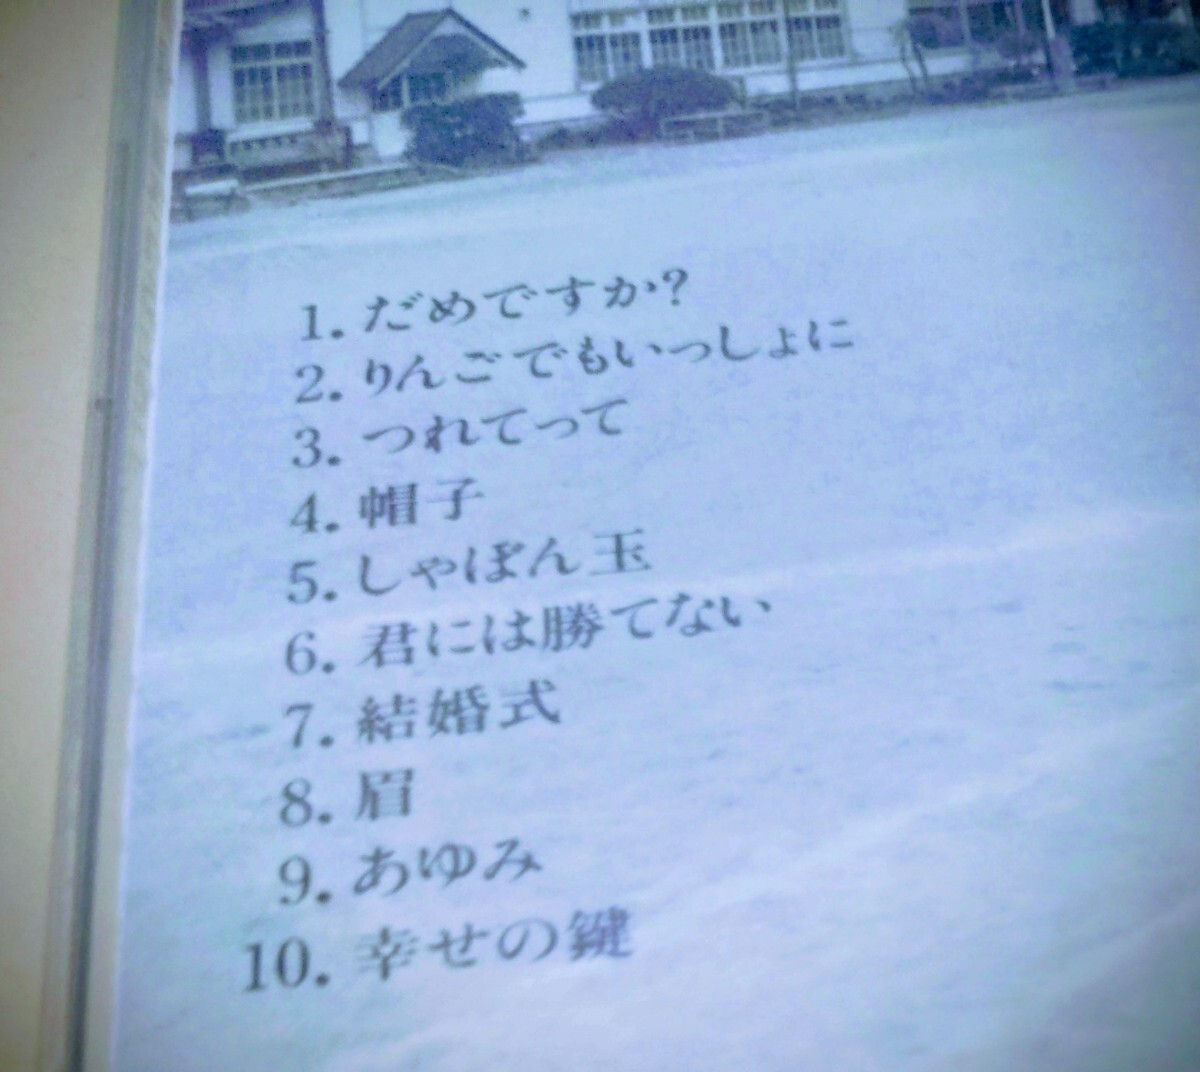 1. だめですか?
2. りんごでもいっしょに
3. つれてって
4. 帽子
5. しゃぼん玉
6. 君には勝てない
7. 結婚式
8. 眉
9. あゆみ
10. 幸せの鍵